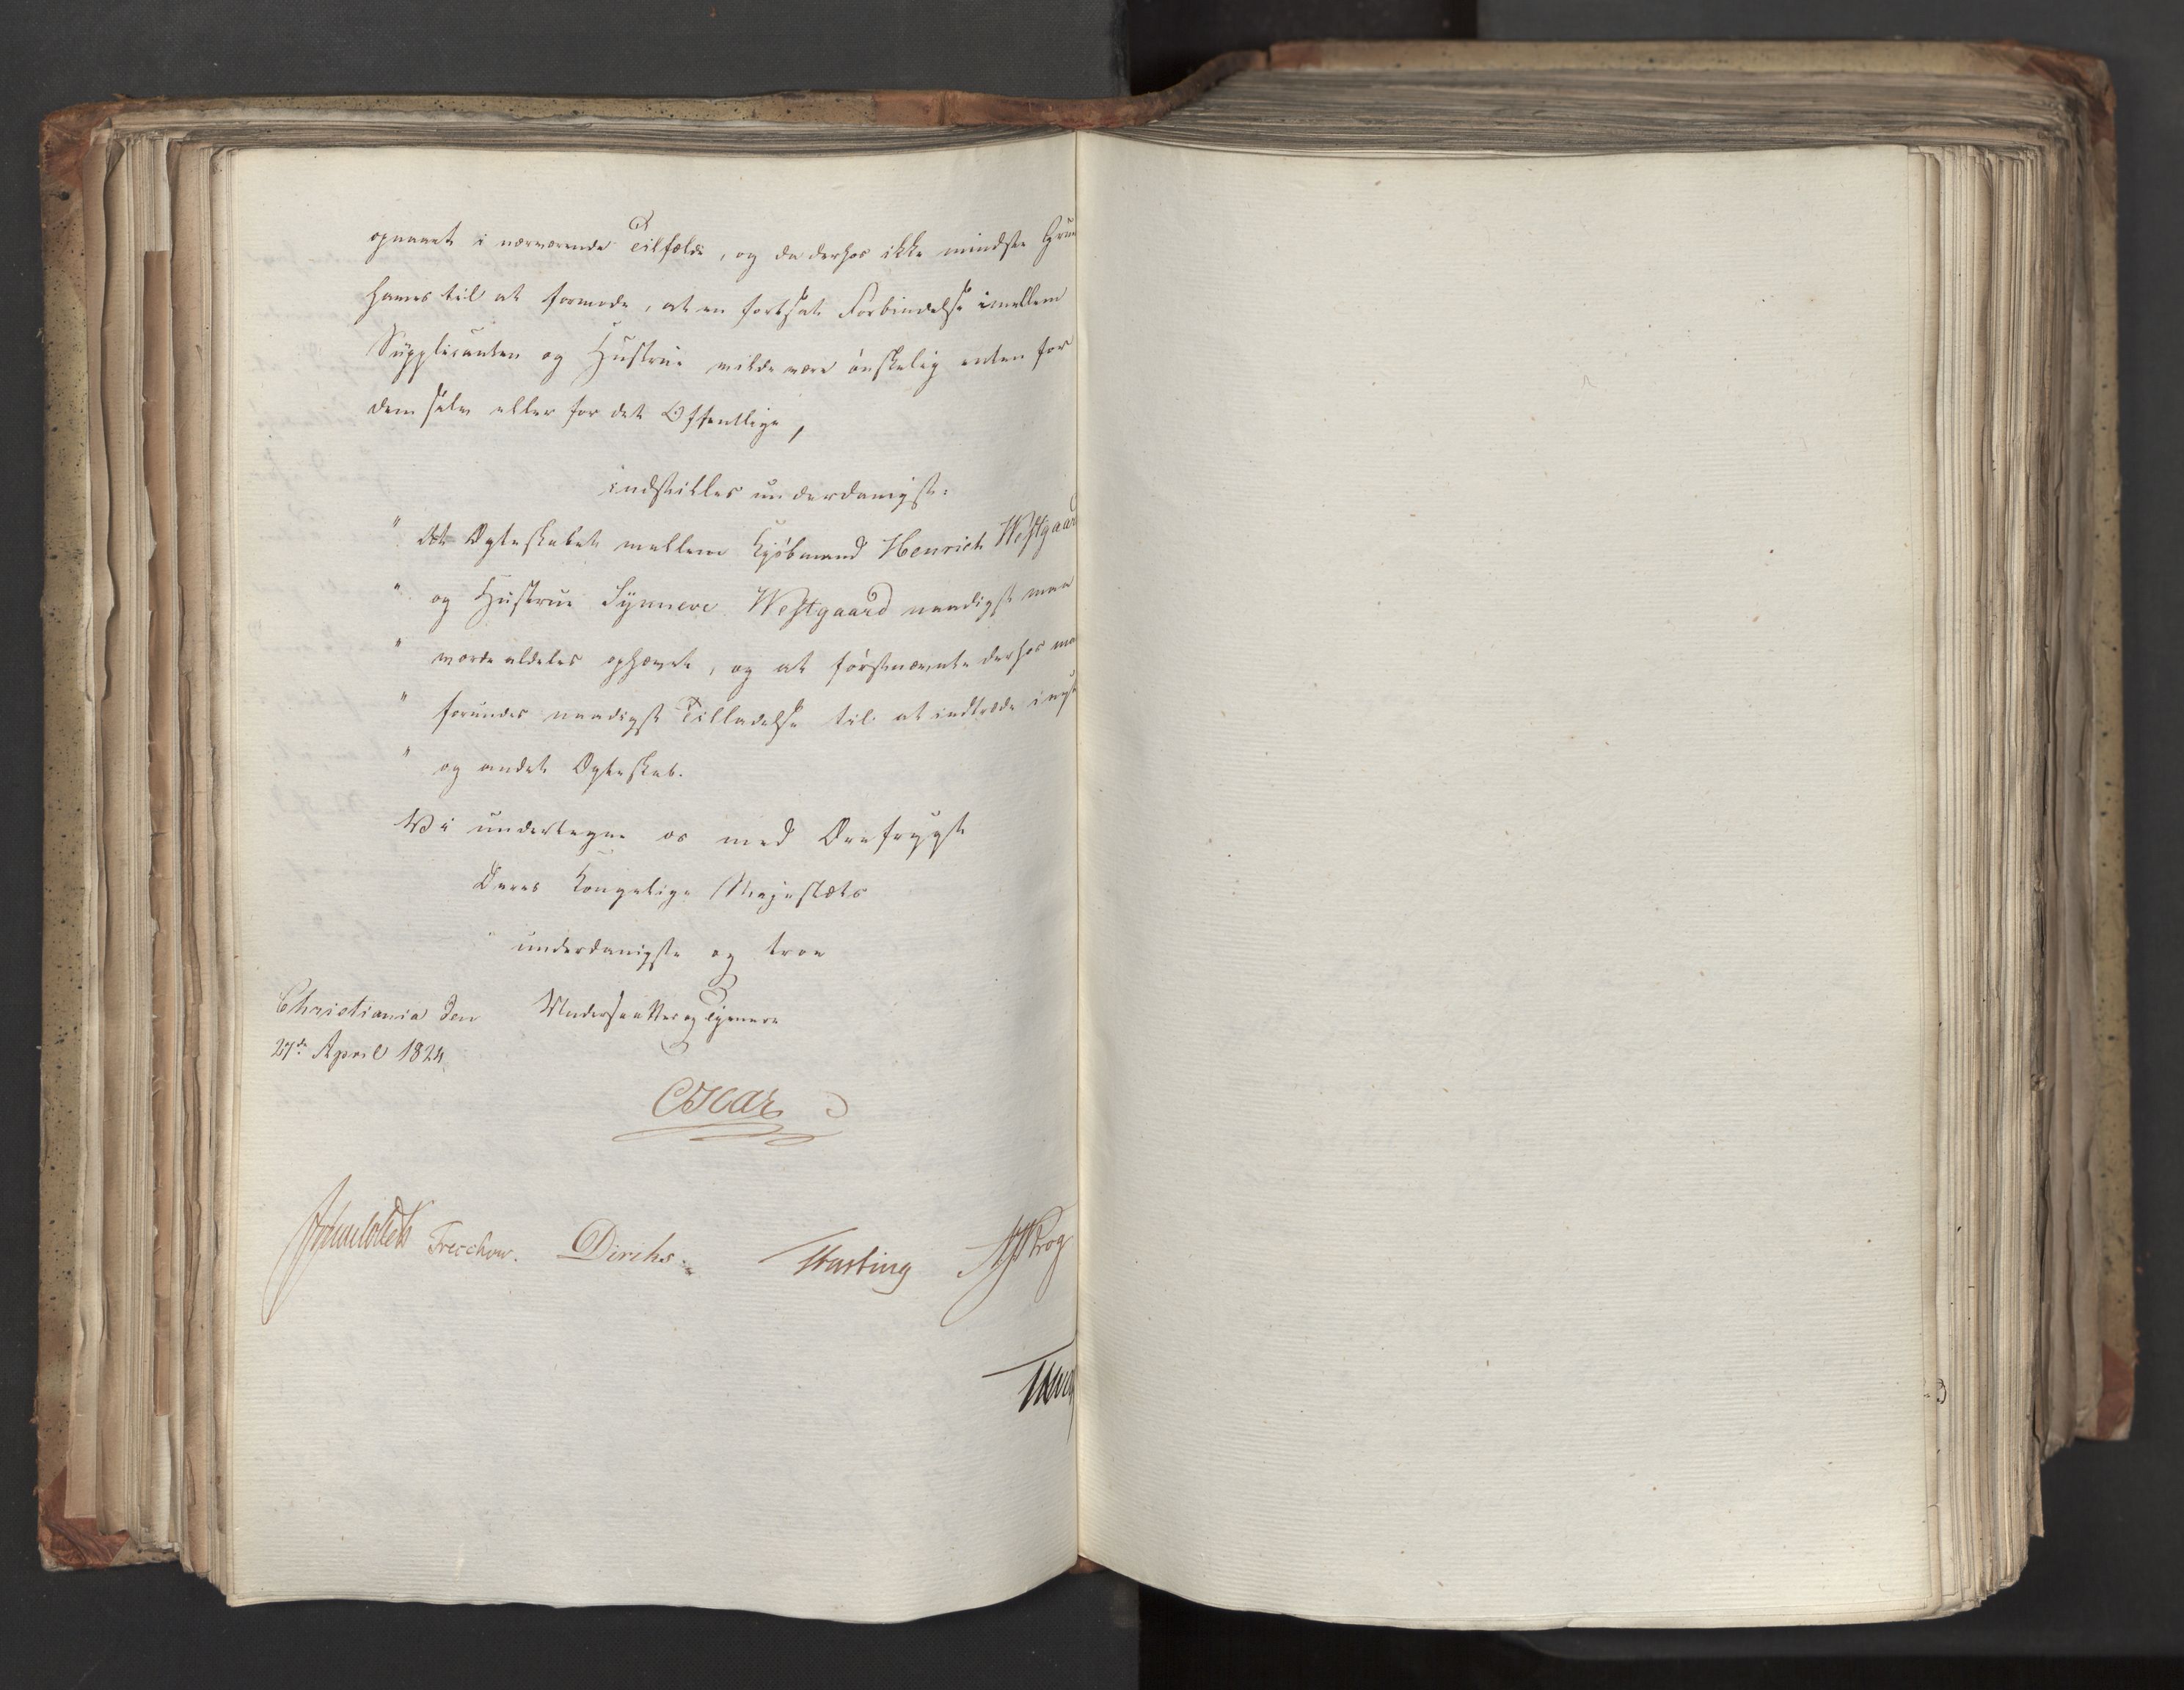 opnaaet i nærværende Tilfælde, og da derhos ikke mindste Grun
haves til at formode, at en fortsat Forbindelse imellem
Supplicanten og Hustrue vilde være ønskelig enten for
dem selv eller for det Offentlige,
indstilles underdanigst:
" At Ægteskabet mellem Kjøbmand Henrich Westgaard
" og Hustrue Synneve Westgaard naadigst maa
" vorde aldeles ophævet, og at førstnævnte derhos maa
" forundes naadigst Tilladelse til at indtræde i nyt
" og andet Ægteskab.
Vi undertegne os med Ærefrygt
Deres Kongelige Majestæts
underdanigste og troe
Christiania den Undersaatter og Tjenere
27de April 1824
Oscar
Treschow. Diriks. Krog